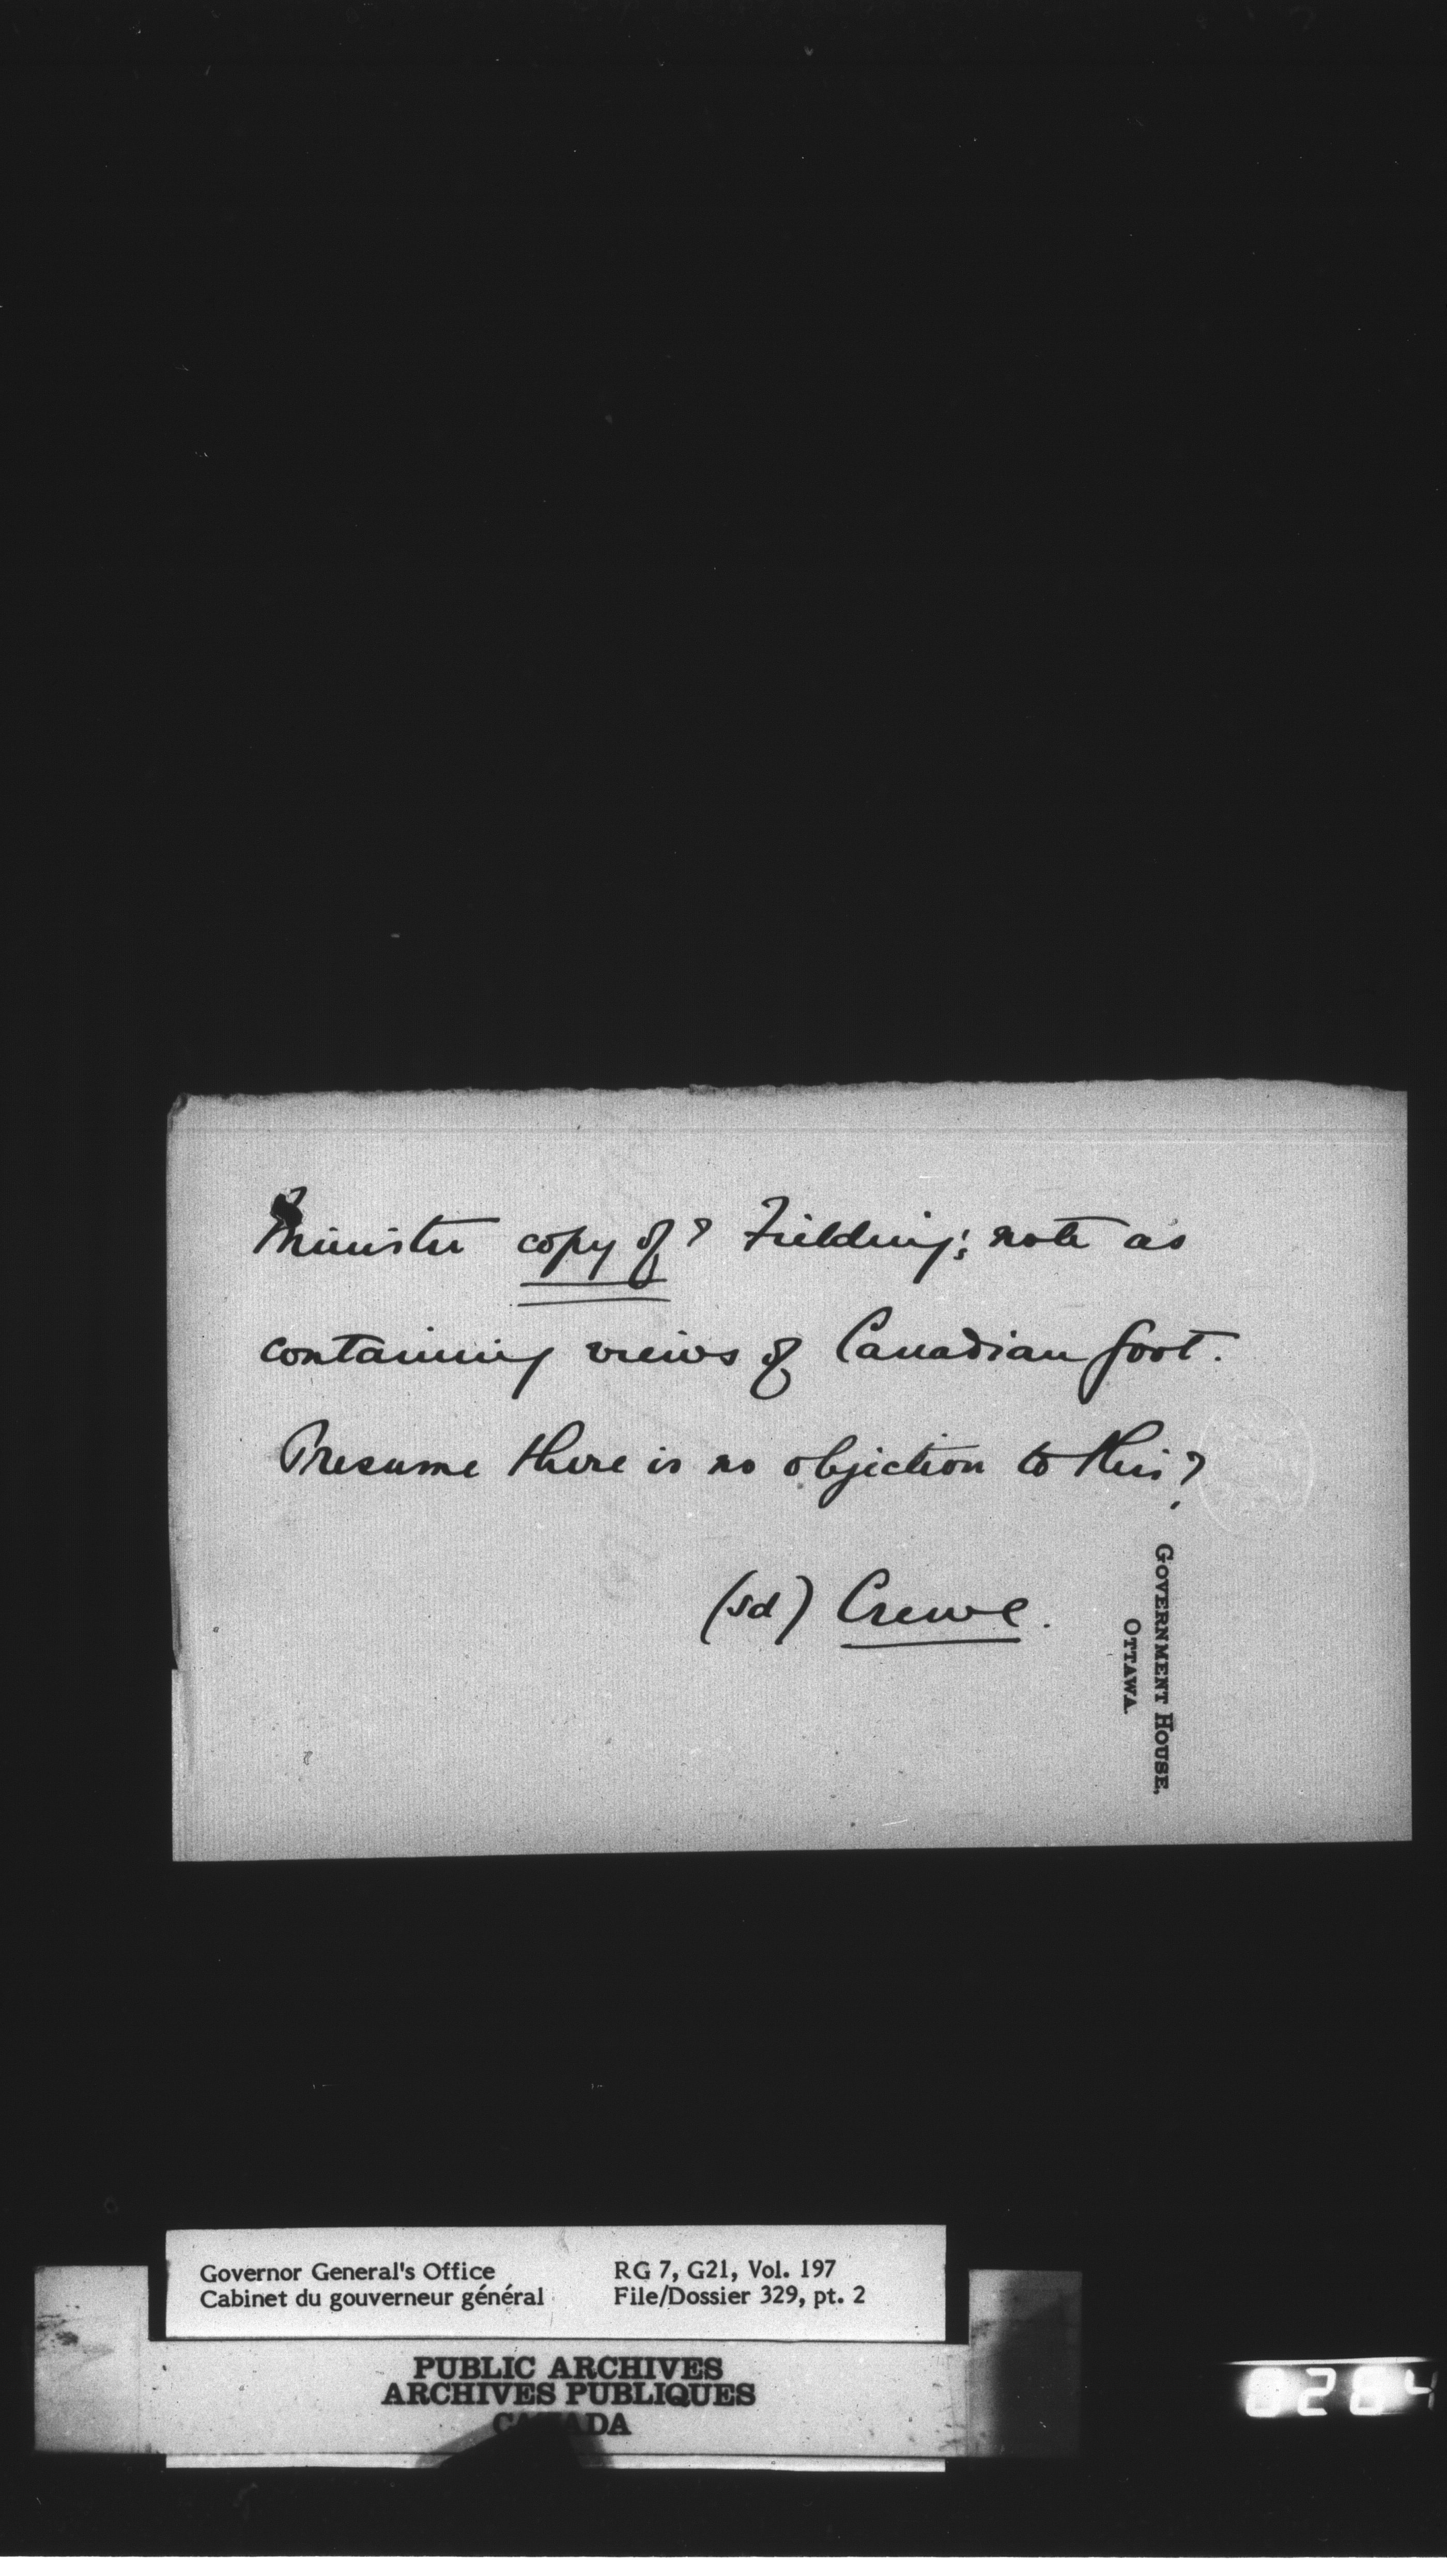 Minister copy of? Fielding's note as
containing views of Canadian Govt.
Presume there is no objection to this?
(sd) Crewe.
GOVERNMENT HOUSE,
OTTAWA
Governor General's Office
Cabinet du gouverneur général
RG 7, G21, Vol. 197
File/Dossier 329, pt. 2
PUBLIC ARCHIVES
ARCHIVES PUBLIQUES
CANADA
0264